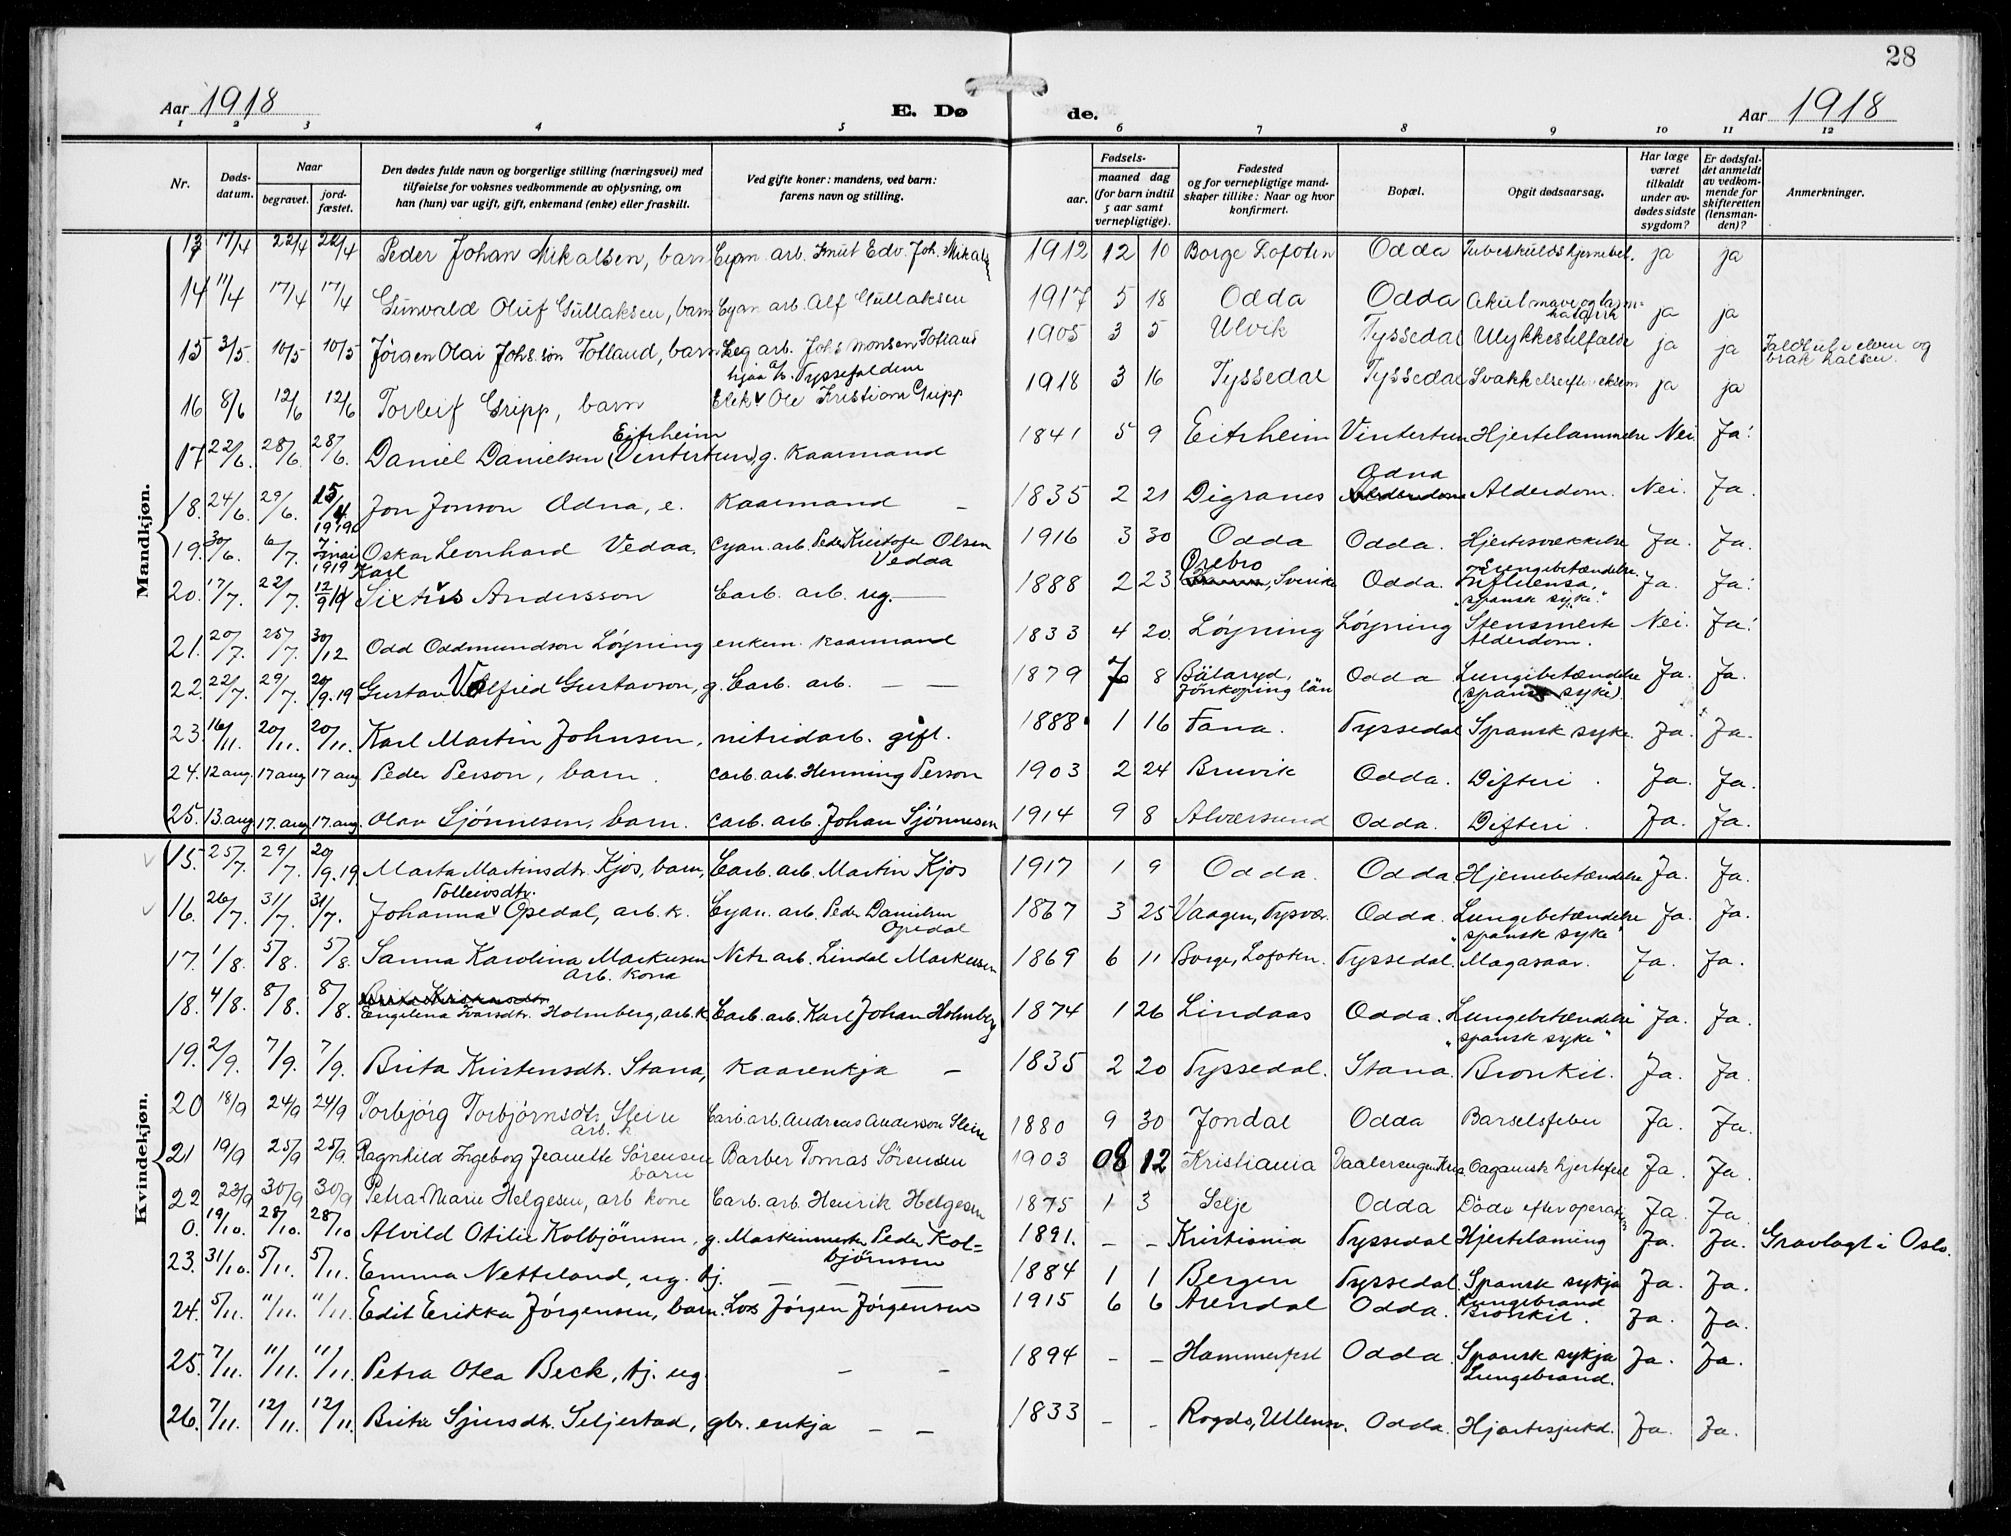 28
Aar 1918 E. Dø de. Aar 1918
1 2 3 4 5 6 7 8 9 10 11 12
Nr. Dødsdatum. Naar begravet. jordfæstet. Den dødes fulde navn og borgerlige stilling (næringsvei) med tilføielse for voksnes vedkommende av oplysning, om han (hun) var ugift, gift, enkemand (enke) eller fraskilt. Ved gifte koner: mandens, ved barn: farens navn og stilling. Fødsels- aar. maaned dag (for barn indtil 5 aar samt vernepligtige). Fødested og for vernepligtige mandskaper tillike: Naar og hvor konfirmert. Bopæl. Opgit dødsaarsag. Har læge været tilkaldt under avdødes sidste sygdom? Er dødsfaldet anmeldt av vedkommende for skifteretten (lensmanden)? Anmerkninger.
Mandkjøn.
13 17/4 22/4 22/4 Peder Johan Mikalsen, barn Cyan. arb. Knut Edv. Joh. Mikals 1912 12 10 Borge Lofoten Odda ja ja
14 11/4 17/4 17/4 Gunvald Oluf Gullaksen, barn Cyan arb. Alf Gullaksen 1917 5 18 Odda Odda Akut mave og tarmkatarrh ja ja
15 3/5. 10/5 10/5 Jörgen Olai Johs. søn Totland, barn Leg arb. Johs Monsen Totland hjaa a/s. Tyssefaldene 1905 3 5 Ulvik Tyssedal Ulykkestilfælde ja ja Faldt ut i elven og brak halsen.
16 8/6 12/6 12/6 Torleif Gripp, barn Elek. Ole Kristian Gripp 1918 3 16 Tyssedal Tyssedal Svakhet efter eksem ja ja
17 22/6. 28/6. 28/6. Daniel Danielsen Eitrheim (Vintertun), g. Kaarmand 1841 5 9 Eitrheim Vintertun Hjertelammelse Nei. Ja.
18. 24/6. 29/6. 15/4 1919 Jon Jonson Odna, e. Kaarmand – 1835 2 21 Digranes Odna Alderdom. Nei. Ja.
19. 30/6. 6/7. 7 mai 1919 Oskar Leonhard Vedaa, Cyan. arb. Peder Kristofer Olsen Vedaa 1916 3 30 Odda Odda. Hjertesvækkelse Ja. Ja.
20. 17/7. 22/7. 12/9 19 Karl Sixtus Andersson Carb. arb. ug. — 1888 2 23 Örebro, Sverike Odda. Lungebetændelse Influensa, "spansk syke." Ja. Ja.
21. 20/7. 25/7. 30/12 Odd Oddmundson Löyning enkem. Kaarmand 1833 4 20. Löyning Löyning Stensmerte Alderdom. Nei. Ja.
22. 22/7. 29/7. 20/9.19 Gustav Valfrid Gustavson, g. Carb. arb. — — 1879 7 8 Bälaryd, Jönkøping län Odda Lungebetændelse (spansk syke). Ja. Ja.
23. 16/11. 20/11. 20/11. Karl Martin Johnsen, nitridarb. gift. 1888 1 16 Fana. Tyssedal Spansk syke. Ja. Ja.
24. 12 aug. 17 aug 17 aug Peder Person, barn. Carb. arb. Henning Person 1903 2 24 Bruvik Odda. Difteri. Ja. Ja.
25. 13. aug 17. aug 17. aug. Olav Sjönnesen, barn. Carb. arb. Johan Sjönnesen 1914 9 8 Alværsund Odda. Difteri. Ja. Ja.
Kvindekjøn.
15. 25/7. 29/7. 20/9.19 Marta Martinsdtr. Kjos, barn, Carb. arb. Martin Kjos 1917 1 9 Odda. Odda. Hjernebetændelse Ja. Ja.
16. 26/7. 31/7. 31/7. Johanna Tolleivsdtr. Opedal, arb. k. Cyan. arb. Peder Danielsen Opedal 1867 3 25 Vaagen, Tysvær. Odda. Lungebetændelse "spansk syke" Ja. Ja.
17. 1/8. 5/8. 5/8. Sanna Karolina Markusen arb. kona Nitr. arb. Lindal Markusen 1869 6 11 Borge, Lofoten. Tyssedal. Magasaar. Ja. Ja.
18. 4/8. 8/8. 8/8. Engelena Ivarsdtr. Holmberg, arb. k. Carb. arb. Karl Johan Holmberg 1874 1 26 Lindaas Odda. Lungebetændelse "spansk syke" Ja. Ja.
19. 2/9. 7/9. 7/9. Brita Kristensdtr. Stana, Kaarenkja – 1835 2 20 Tyssedal. Stana. Bronkit. Ja. Ja.
20 18/9 24/9 24/9 Torbjörg Torbjörnsdtr. Sleire arb. k Carb. arb. Andreas Andersson Sleire 1880 9 30 Jondal Odda Barselsfeber Ja. Ja.
21 19/9 25/9 25/9. Ragnhild Ingeborg Jeanette Sörensen barn Barber Tomas Sörensen 1903 08 12 Kristiania Vaalerengen Kria Organisk hjertefeil Ja. Ja.
22 23/9 30/9 30/9 Petra Marie Helgesen, arb kone Carb. arb. Henrik Helgesen 1875 1 3 Selje Odda Döde efter operation Ja. Ja.
0. 19/10. 28/10. 28/10 Alvild Otilie Kolbjörnsen, g. Maskinmester Peder Kolbjörnsen 1891. – – Kristiania Tyssedal Hjertelaming Ja. Ja. Gravlagt i Oslo.
23. 31/10. 5/11. 5/11. Emma Netteland, ug. tj. — — — 1884 1 1 Bergen Tyssedal Spansk sykja Lungebrand Ja. Ja.
24. 5/11. 11/11. 11/11. Edit Erikka Jörgensen, barn. Los Jörgen Jörgensen 1915 6 6 Arendal Odda. Bronkit. Ja. Ja.
25. 7/11. 11/11. 11/11. Petra Olea Beck, tj. ug. – – 1894 – – Hammerfest Odda. Spansk sykja Lungebrand. Ja. Ja.
26. 7/11. 12/11. 12/11. Brita Sjursdtr. Seljestad, gbr. enkja – – 1833 – – Rogdo, Ullensv. Odda. Hjartesjukd. Ja. Ja.